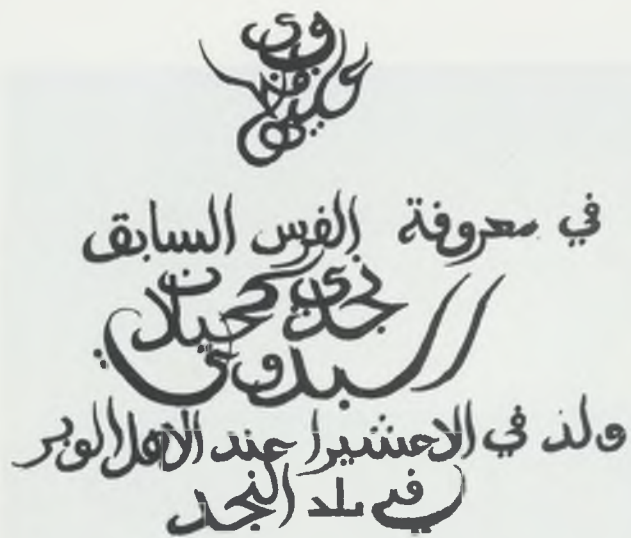 في معروفة الفرس السابق
نجدي كحيلان
البدوي
ولد في الاعشيرا عند الاهل الوبر
في بلد النجد